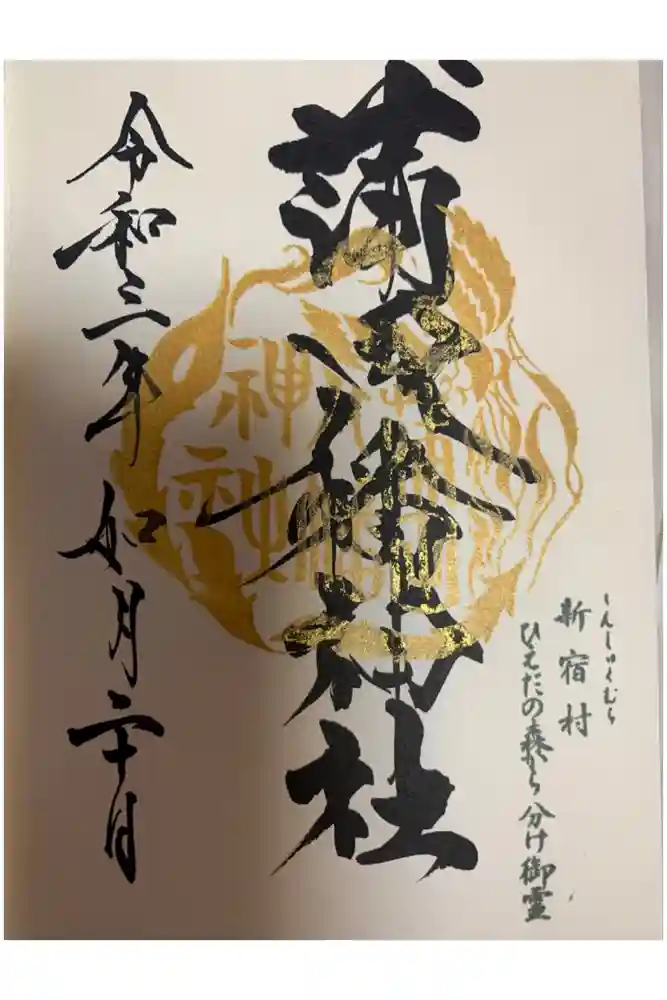 しんしゅくむら
新宿村
ひえだの森から 分け御霊
蒲田八幡神社
神社
令和三年 如月二十日